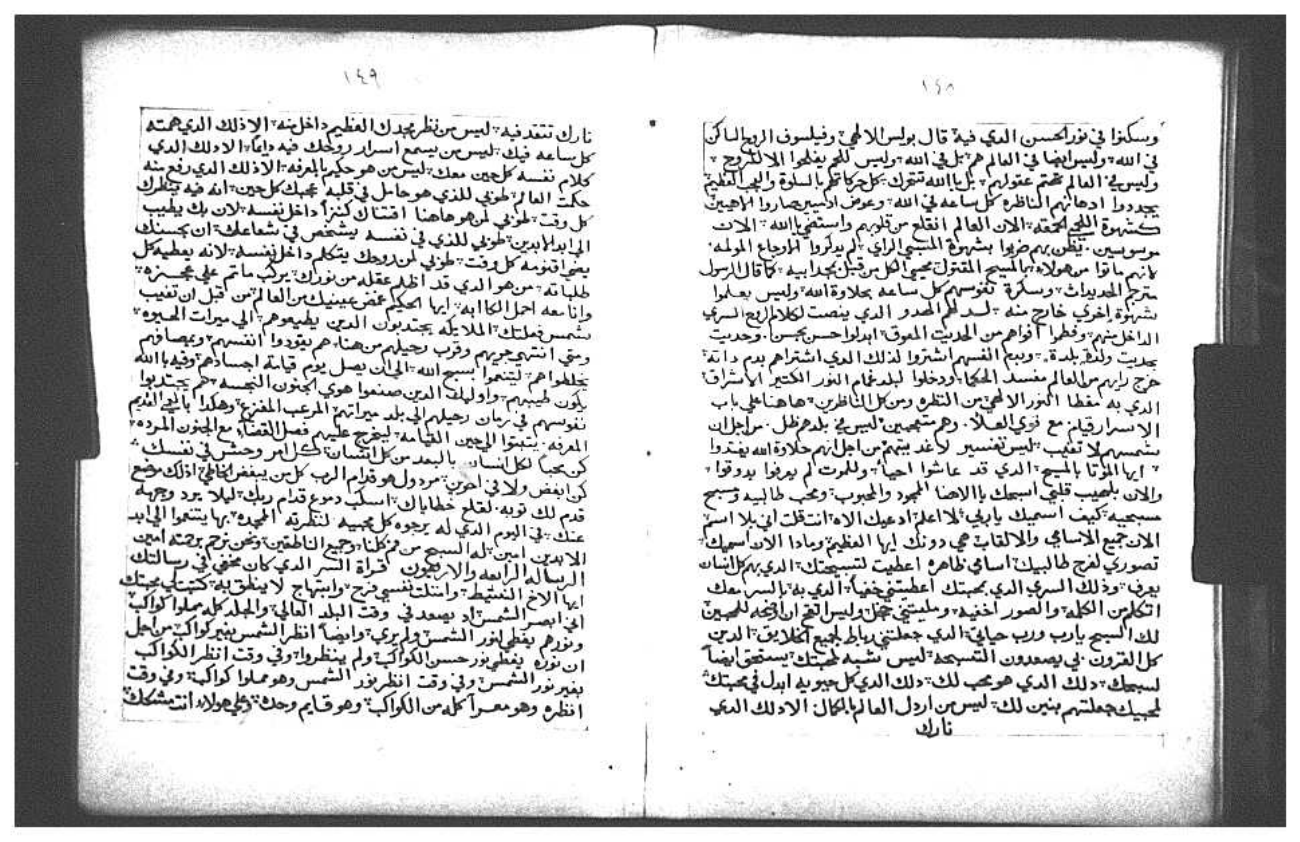 ١٤٨
وسكنوا في نور الحسن الذي فيه قال بولس الالهي وفيلسوف الروح الساكن
في الله وليس ايضا في العالم هم بل في الله وليس للحم يفلحوا الا للروح
وليس في العالم تهتم عقولهم بل بالله تتحرك كل حركاتهم بالسلوة والعجب العظيم
يجددوا ادهانهم الناظره كل ساعه في الله وعوض ادميين صاروا الاهيين
الان العالم انقلع من قلوبهم واستخفي بالله الان
موسوسين يظن بهم ضربوا بشهوة المسيح الراي لم يدكروا الاوجاع المولمه
بانهم ماتوا من هولاء بالمسيح المقتول محيي الكل من قبل مجد ابيه كما قال الرسول
مترجم الجديدات وسكرة نفوسهم كل ساعه بحلاوة الله وليس يعلموا
شهوة اخري خارج منه لدلهم الهدو الذي ينصت لكلام الروح السري
الداخل منهم وفطموا افواهم من الحديث المعوق ابدلوا حسن بحسن وحديث
بحديث ولذة بلدة وببيع انفسهم اشتروا لذلك الدي اشتراهم بدم داته
خرج رايهم من العالم مفسد الحكما ودخلوا لبلد غمام النور الكتير الاشراق
الدي به مغطا النور الالهي من النظره ومن كل الناظرين هاهنا علي باب
الاسرار قيام مع قوي العلا وهم متعجبين ليس في بلدهم ظل من اجل ان
شمسهم لا تغيب ليس تفسير لاغد بينهم من اجل انهم حلاوة الله يغتدوا
ايها الموتا بالمسيح الدي قد عاشوا احيا وللموت لم يعرفوا يدوقوا
والان بلهيب قلبي اسبحك يا الاهنا الممجد والمحبوب ومحب طالبيه ومسبح
مسبحيه كيف اسميك ياربي لا اعلم ادعيك الاه انت قلت اني بلا اسم
الان جميع الاسامي والالقاب هي دونك ايها العظيم وماذا الان اسميك
تصوري لفرح طالبيك اسامي ظاهره اعطيت لتسبحتك الدي بهم كل انسان
يعرف وذلك السري الدي بمحبتك اعطيتني خفيا الدي به بالسر معك
اتكلم من الكلمه والصور اخفيه ومليتني خجل وليس تفتح ان اوهبه للمحبين
لك السبح يارب ورب حياتي الدي جعلتني رباط لجميع الخلايق الدين
كل القرون لي يصعدون التسبحه ليس شبه لمحبتك يستحق ايضا
لسبحك دلك الدي هو محب لك دلك الدي كل حيويه ابدل في محبتك
لمحبيك جعلتهم بنين لك ليس من اردل العالم بالكمال الا دلك الدي
نارك
١٤٩
نارك تتقد فيه ليس من نظر مجدك العظيم داخل منه الا ذلك الدي همته
كل ساعه فيك ليس من يسمع اسرار روحك فيه دايما الا دلك الدي
كلام نفسه كل حين معك ليس من هو حكيم بالمعرفه الا ذلك الدي رفع منه
حكمت العالم طوبي للذي هو حامل في قلبه عجبك كل حين انه فيه ينظرك
كل وقت طوبي لمن هو هاهنا اقتناك كنزا داخل نفسه لان بك يطيب
الي ابد الابدين طوبي للذي في نفسه يشخص في شعاعك ان بحسنك
يغني اقنومه كل وقت طوبي لمن روحك يتكلم داخل نفسه لانه يعطيه كل
طلباته من هو الدي قد اظلم عقله من نورك يركب ماتم علي عجزه
وانا معه احمل الكاابه ايها الحكيم غمض عينيك من العالم من قبل ان تغيب
شمس فعلتك الملايكه يجتدبون الدين يطيعوهم الي ميرات الحيوه
ومتي انتهي جريهم وقرب رحيلهم من هنا هم يقودوا انفسهم وبمصافهم
يخلطوهم ليتنعموا بسبح الله الي ان يصل يوم قيامة اجسادهم وفيه بالله
يكون طيبهم واوليك الدين صنعوا هوي الجنون النجسه هم يجتدبوا
نفوسهم في زمان رحيلهم الي بلد ميراتهم المرعب المفزع وهكدا بالبعد القديم
المعرفه يتبتوا الي حين القيامه ليخرج عليهم فصل القضا مع الجنون المرده
كن محبا لكل انسان بالبعد من كل انسان كل امر وحش في نفسك
كن ابغض ولا في اخوين مردول هو قدام الرب كل من يبغض الخاطي اذلك موضع
قدم لك توبه لقلع خطاياك اسكب دموع قدام ربك ليلا يرد وجهه
عنك في اليوم الدي له يرجوه كل محبيه لنظرته المجده بها يتنعموا الي ابد
الابدين امين له السبح من فم كلنا وجميع الناطقين ونحن نرحم برحمته امين
الرساله الرابعه والاربعون قراة السر الدي كان مخفي في رسالتك
ايها الاخ النشيط وامتلت نفسي فرح وابتهاج لا ينطق به كتبت لي محبتك
اني ابصر الشمس اد يصعد في وقت البلد العالي والجلد كله مملوا كواكب
ونورهم يغطي لنور الشمس ولم يري وايضا انظر الشمس بغير كواكب من اجل
ان نوره يغطي نور حسن الكواكب ولم ينظروا وفي وقت انظر الكواكب
بغير نور الشمس وفي وقت انظر نور الشمس وهو مملوا كواكب وفي وقت
انظره وهو معرا كله من الكواكب وهو قايم وحده وعلي هولاء انت متشكك